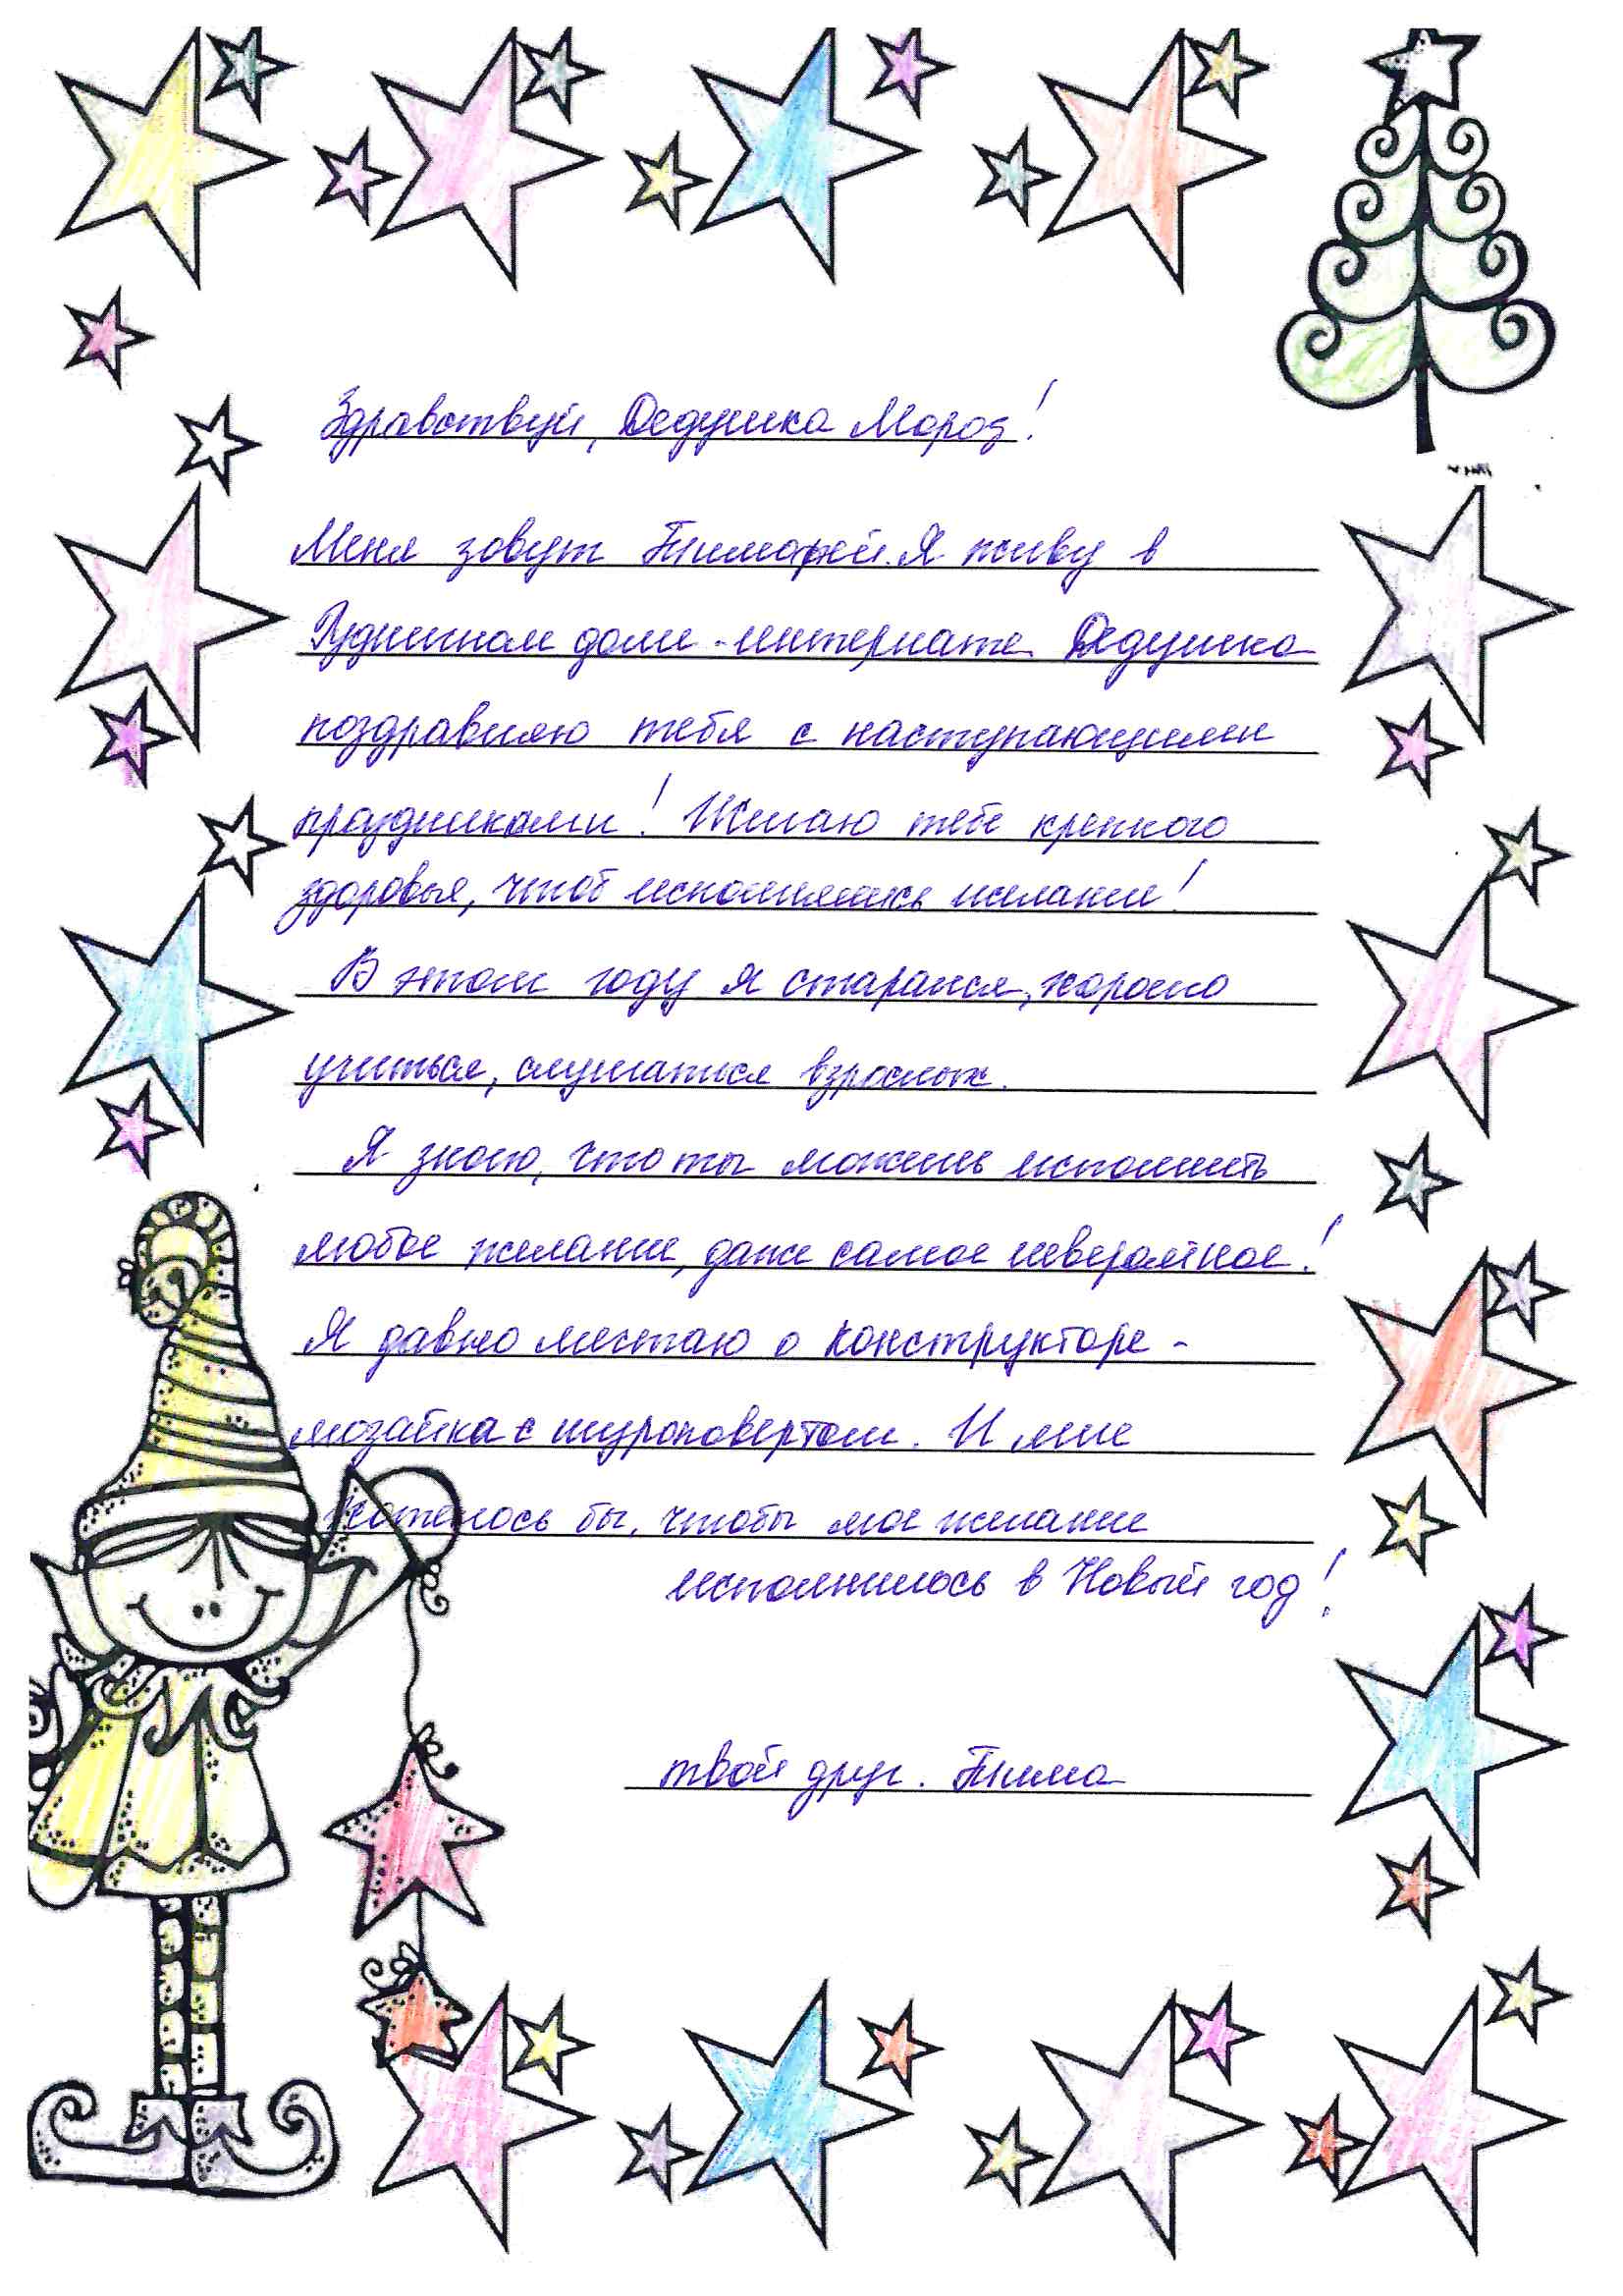 Здравствуй, Дедушка Мороз!
Меня зовут Тимофей. Я живу в
Руднишном доме-интернате. Дедушка
поздравляю тебя с наступающими
праздниками! Желаю тебе крепкого
здоровья, чтоб исполнялись желание!
В этом году я старался, хорошо
учиться, слушаться взрослых.
Я знаю, что ты можешь исполнить
любое желание, даже самое невероятное!
Я давно мечтаю о конструкторе-
мозайка с шуроповертом. И мне
хотелось бы, чтобы мое желание
исполнилось в Новый год!
твой друг. Тима